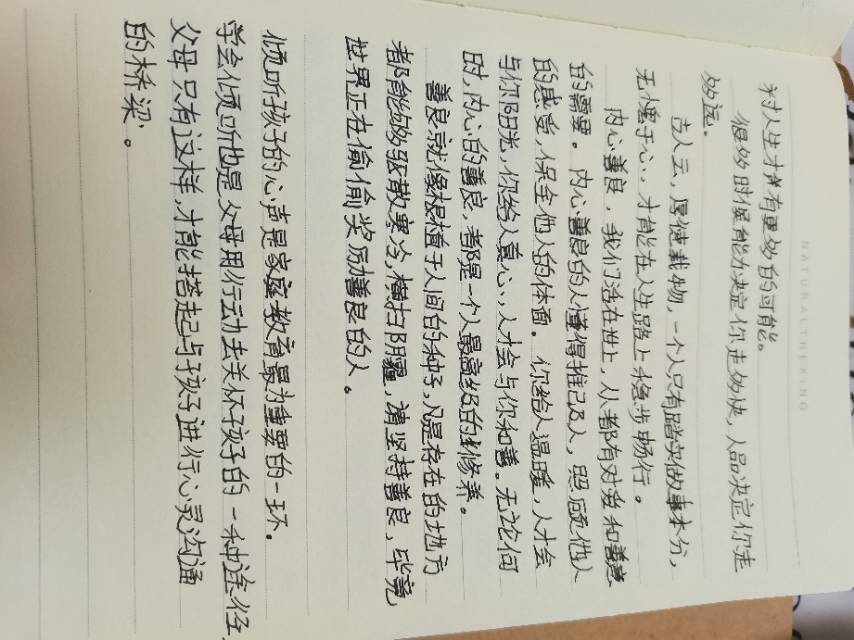 NATURALTHEKING
对人生才能有更多的可能。
很多时候能力决定你走多快，人品决定你走
多远。
古人云，厚德载物，一个人只有踏实做事本分，
无愧于心，才能在人生路上稳步畅行。
内心善良，我们活在世上，人都有对爱和善意
的需要。内心善良的人懂得推己及人，照顾他人
的感受，保全他人的体面。你给人温暖，人才会
与你阳光，你给人真心，人才会与你和善。无论何
时，内心的善良，都是一个人最高级的修养。
善良就像根植于人间的种子，凡是存在的地方
都能够驱散寒冷，横扫阴霾，请坚持善良，毕竟
世界正在偷偷奖励善良的人。
倾听孩子的心声是家庭教育最为重要的一环。
学会倾听也是父母用行动去关怀孩子的一种途径，
父母只有这样，才能搭起与孩子进行心灵沟通
的桥梁。